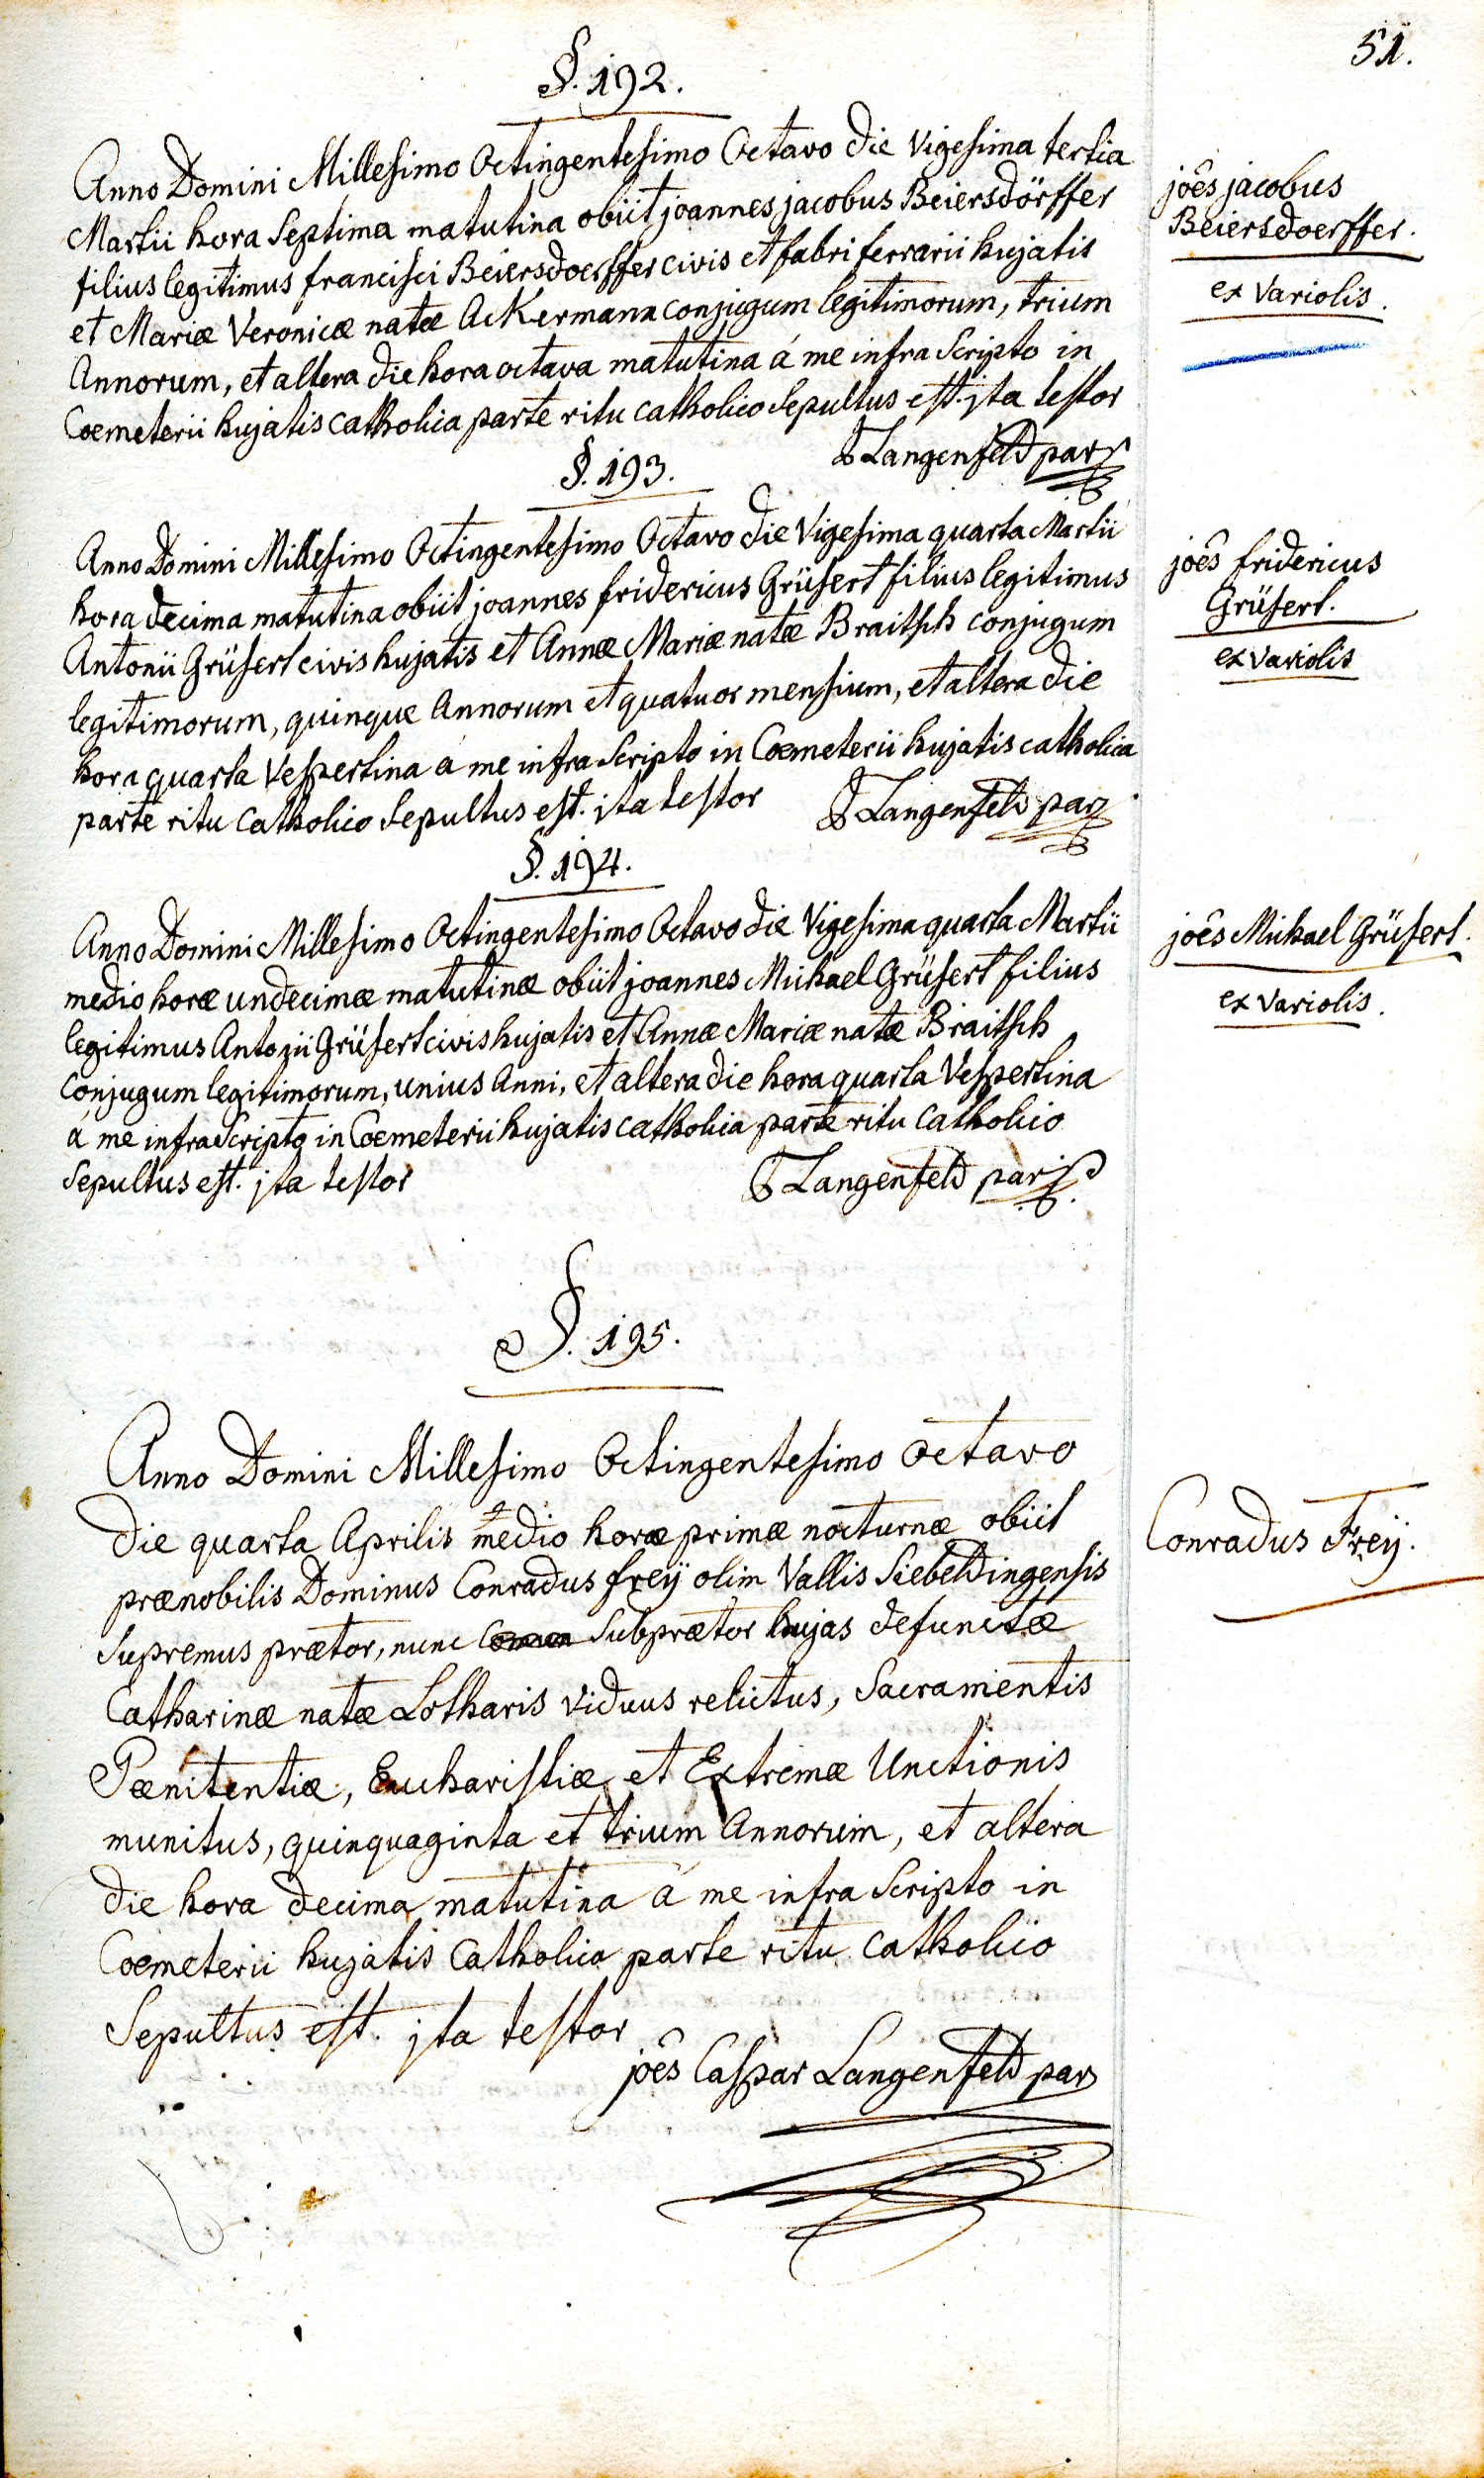 51.
§. 192.
Anno Domini Millesimo Octingentesimo Octavo die Vigesima tertia
Martii hora Septima matutina obiit joannes jacobus Beiersdörffer
filius legitimus francisci Beiersdoerffer civis et fabri ferrarii hujatis
et Mariæ Veronicæ natæ Ackermann conjugum legitimorum, trium
Annorum, et altera die hora octava matutina á me infra Scripto in
Coemeterii hujatis catholica parte ritu catholico Sepultus est. jta testor
Langenfeld par
joês jacobus
Beiersdoerffer.
ex Variolis.
§. 193.
Anno Domini Millesimo Octingentesimo Octavo die Vigesima quarta Martii
hora decima matutina obiit joannes fridericus Grüsert filius legitimus
Antonii Grüsert civis hujatis et Annæ Mariæ natæ Braitsch conjugum
legitimorum, quinque Annorum et quatuor mensium, et altera die
hora quarta Vespertina á me infra Scripto in Coemeterii hujatis catholica
parte ritu Catholico Sepultus est. jta testor
Langenfeld par
joês fridericus
Grüsert.
ex Variolis
§. 194.
Anno Domini Millesimo Octingentesimo Octavo die Vigesima quarta Martii
medio horæ undecimæ matutinæ obiit joannes Michael Grüsert filius
legitimus Antonii Grüsert civis hujatis et Annæ Mariæ natæ Braitsch
Conjugum legitimorum, unius Anni, et altera die hora quarta Vespertina
á me infra Scripto in Coemeterii hujatis catholica parte ritu Catholico
Sepultus est. jta testor
Langenfeld par
joês Michael Grüsert.
ex Variolis.
§. 195.
Anno Domini Millesimo Octingentesimo Octavo
die quarta Aprilis medio horæ primæ nocturnæ obiit
prænobilis Dominus Conradus freÿ olim Vallis Siebeldingensis
Supremus prætor, nunc Subprætor hujas defunctæ
Catharinæ natæ Lotharis viduus relictus, Sacramentis
Pænitentiæ, Eucharistiæ, et Extremæ Unctionis
munitus, quinquaginta et trium Annorum, et altera
die hora decima matutina á me infra Scripto in
Coemeterii hujatis Catholica parte ritu catholico
Sepultus est. jta testor
joês Caspar Langenfeld par
Conradus Freÿ.